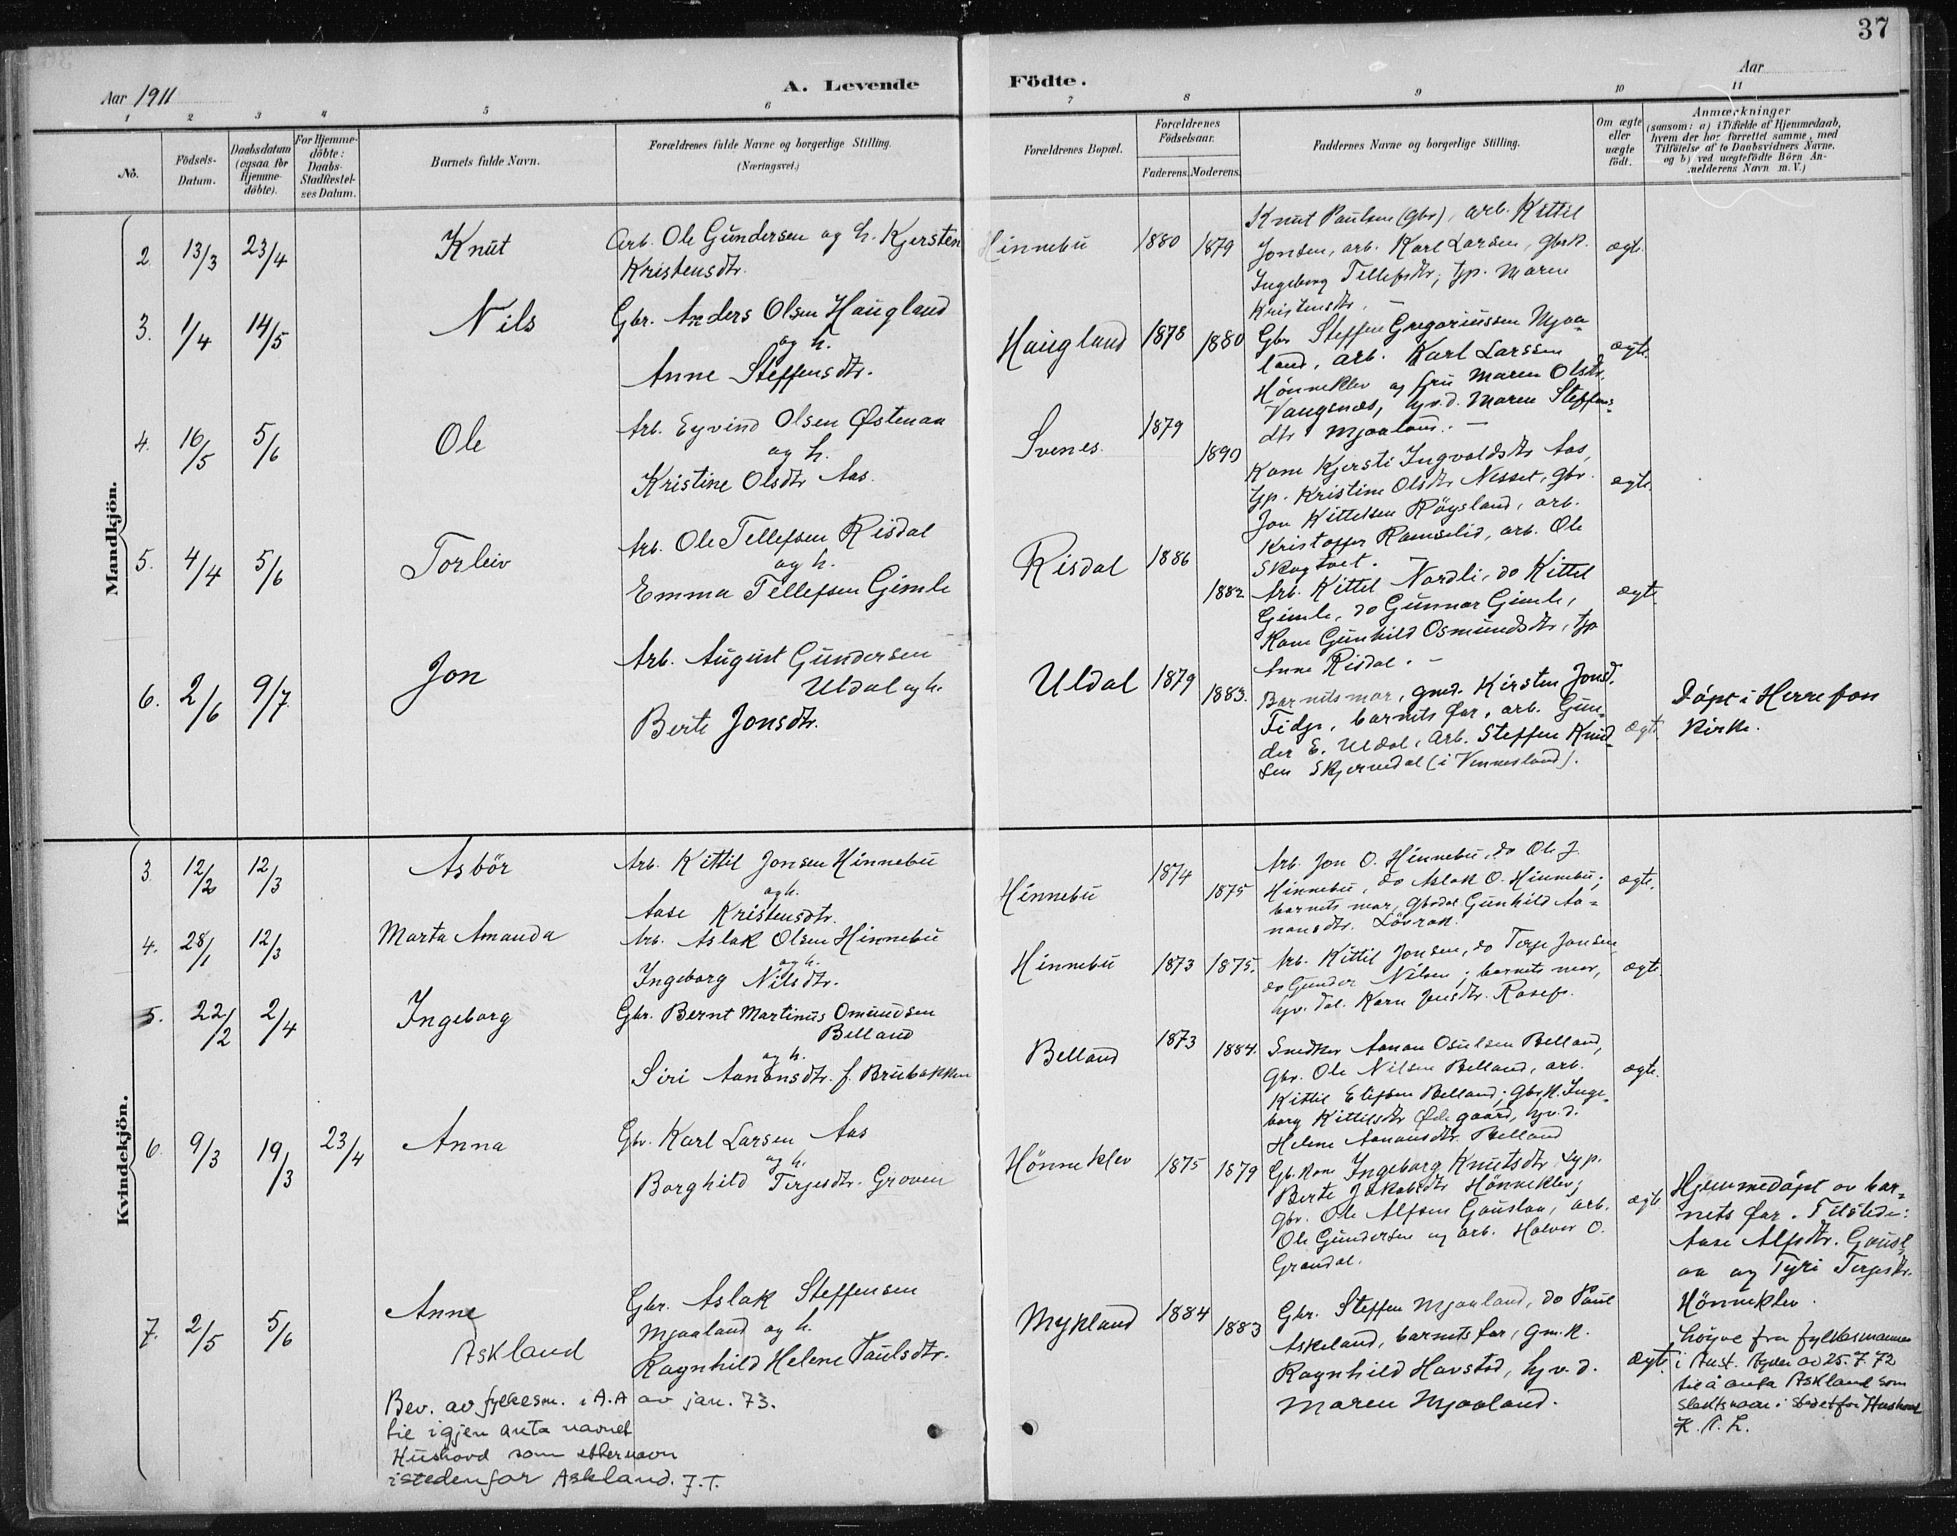 37
Aar 1911
A. Levende
Födte.
Aar
1 2 3 4 5 6 7 8 9 10 11
No.
Födsels-
Datum.
Daabsdatum
(ogsaa for
Hjemme-
döbte).
For Hjemme-
döbte:
Daabs-
Stadfæstel-
ses Datum.
Barnets fulde Navn.
Forældrenes fulde Navne og borgerlige Stilling.
(Næringsvei.)
Forældrenes Bopæl.
Forældrenes
Födselsaar.
Faderens. Moderens.
Faddernes Navne og borgerlige Stilling.
Om ægte
eller
uægte
födt.
Anmærkninger
(saasom: a) i Tilfælde af Hjemmedaab,
hvem der har forrettet samme, med
Tilföielse af to Daabsvidners Navne,
og b) ved uægtefödte Börn An-
melderens Navn m. V.)
Mandkjön.
2. 13/3 23/4 Knut
Arb. Ole Gundersen og h. Kjersten
Kristensdtr.
Hinnebu 1880 1879
Knut Paulsen (gbr), arb. Kittil
Jonsen, arb. Karl Larsen, gbrk.
Ingeborg Tellefsdtr, tjp. Maren
Kristensdtr.
ægte.
3. 1/4 14/5 Nils
Gbr. Anders Olsen Haugland
og h.
Anne Steffensdtr.
Haugland 1878 1880
Gbr Steffen Gregoriussen Mjaa-
land, arb. Karl Larssen
Hönneklev og fru Maren Olsdtr.
Vaugsnæs, hjv.d. Maren Steffens-
dtr Mjaaland. -
ægte.
4. 16/5 5/6 Ole
Arb. Eyvind Olsen Østenaa
og h.
Kristine Olsdtr Aas.
Svenes. 1879 1890
Kone Kjersti Ingvaldsdtr Aas,
tjp. Kristine Olsdtr Nesset, gbr.
Jon Kittelsen Röysland, arb.
Kristoffer Ramselid, arb. Ole
Skogtvet.
ægte.
5. 4/4 5/6 Torleiv
Arb. Ole Tellefsen Risdal
og h.
Emma Tellefsen Gimle
Risdal 1886 1882
Arb. Kittel Nordli, do Kittel
Gimle, do Gunnar Gimle,
Kone Gunhild Osmundsdtr, tjp
Anne Risdal. -
ægte.
6. 2/6 9/7 Jon
Arb. August Gundersen
Uldal og h.
Berte Jonsdtr.
Uldal 1879 1883.
Barnets mor, gmd. Kirsten Jonsd.
Tidje, barnets far, arb. Gun-
der E. Uldal, Arb. Steffen Knud-
sen Skjerredal (i Vennesland).
ægte.
Döpt i Herrefos
Kirke.
Kvindekjön.
3. 12/2 12/3 Asbör
Arb. Kittil Jonsen Hinnebu
og h.
Aase Kristensdtr.
Hinnebu 1874 1875
Arb. Jon O. Hinnebu, do Ole J.
Hinnebu, do Aslak O. Hinnebu;
barnets mor, Gunhild Aa-
nonsdtr. Lövrak.
ægte.
4. 28/1 12/3 Marta Amanda
Arb. Aslak Olsen Hinnebu
og h.
Ingeborg Nilsdtr.
Hinnebu 1873 1875.
Arb. Kittil Jonsen, do Terje Jonsen
do Gunder Nilsen; barnets mor,
hjv. dat. Karn Jensdtr.
ægte
5. 22/2 2/4 Ingeborg
Gbr. Bernt Martinus Omundsen
Belland
og h.
Siri Aanonsdtr. f. Brubakken
Belland 1873 1884.
Snedker Aanon Osulsen Belland,
gbr. Ole Nilsen Belland, arb.
Kittil Elefsen Belland; Gbrk. Inge-
borg Kittilsdtr Ødegaard, hjv.d.
Helene Aanonsdtr. Belland
ægte.
6. 9/3 19/3 23/4 Anna
Gbr. Karl Larsen Aas
og h.
Borghild Terjesdtr. Groven
Hönneklev 1875 1879
Gb.kone Ingeborg Knutsdtr, tjp.
Berte Jakobsdtr Hönneklev;
gbr. Ole Alfsen Gauslaa, arb.
Ole Gundersen og arb. Halvor O.
Grandal.
ægte
Hjemmedöpt av bar-
nets far. Tilstede:
Aase Alfsdtr. Gausl-
aa og Tyri Terjesdtr.
Hönneklev.
7. 2/5 5/6 Anne
Askland
Gbr. Aslak Steffensen
Mjaaland og h.
Ragnhild Helene Paulsdtr.
Mykland 1884 1883
Gbr. Steffen Mjaaland, do Paul
Askeland, barnets far, gm.k.
Ragnhild Havstad, hjv.d.
Maren Mjaaland.
ægte.
Löyve fra fylkesmannen
i Aust. Agder av 25.7.72
til å anta Askland som
slektsnavn i stedet for Hushovd
K. T. L.
Bev. av fylkesm. i A.A av jan. 73.
til igjen anta navnet
Hushovd som etternavn
istedenfor Askland. J.T.